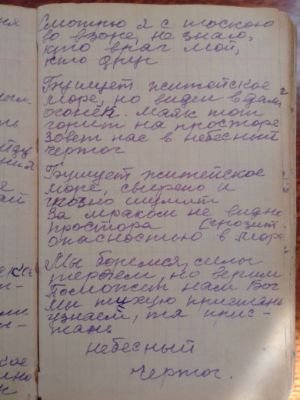 Смотрю я с тоскою
во взоре не знаю,
кто враг мой,
кто друг
Бушует житейское
море, но виден вдали
огонёк. Маяк тот
горит на просторе
Зовет нас в небесный
чертог
Бушует житейское
море, свирепо и
грозно шумит
За мраком не видно
простора Грозит
опасностью в море
Мы боремся, силы
теряем, но верим
Поможет нам Бог
Мы тихую пристань
узнаем, та прис-
тань
Небесный
Чертог.